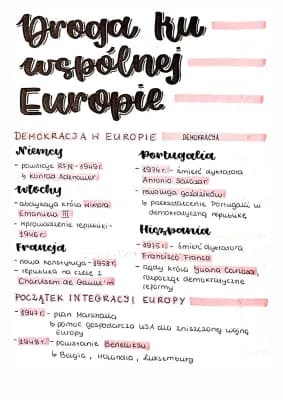 Droga ku
wspólnej
Europie
DEMOKRACJA W EUROPIE
DEMOKRACJA
Niemcy
- powstaje RFN - 1949r.
↳ konrad Adenauer
Włochy
- abdykacja króla Wiktora
Emanuela III
- wprowadzenie republiki -
1946r.
Francja
- nowa konstytucja - 1958r.
- republika na czele z
Charlesem de Gaulle'm
Portugalia
- 1974r. - śmierć dyktatora
Antonio Salazar
- rewolucja goździków
↳ przekształcenie Portugalii w
demokratyczną republikę
Hiszpania
- 1975r. - śmierć dyktatora
Francisco Franco
- rządy króla Juana Carlosa,
rozpoczął demokratyczne
reformy
POCZĄTEK INTEGRACJI EUROPY
- 1947r. - plan Marshalla
↳ pomoc gospodarcza USA dla zniszczonej wojną
europy
- 1948r. - powstanie Beneluksu
↳ Belgia, Holandia, Luksemburg